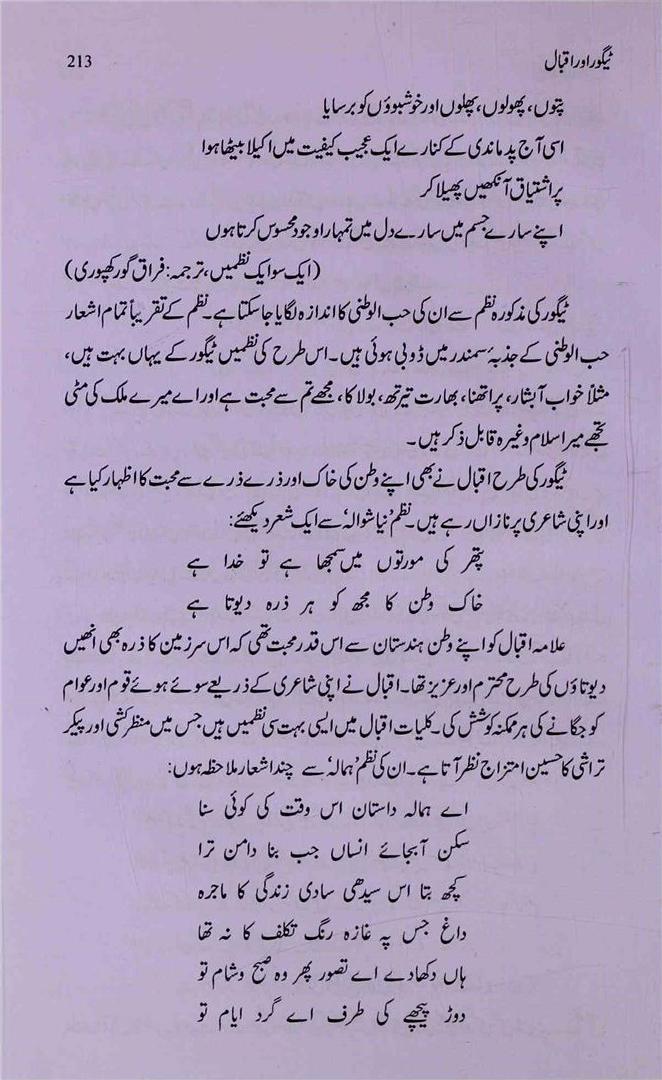 ٹیگور اور اقبال 213
پتوں، پھولوں، پھلوں اور خوشبوؤں کو برسایا
اسی آج پدماندی کے کنارے ایک عجیب کیفیت میں اکیلا بیٹھا ہوا
پر اشتیاق آنکھیں پھیلا کر
اپنے سارے جسم میں سارے دل میں تمہارا وجود محسوس کرتا ہوں
(ایک سو ایک نظمیں، ترجمہ: فراق گورکھپوری)
ٹیگور کی مذکورہ نظم سے ان کی حب الوطنی کا اندازہ لگایا جاسکتا ہے۔ نظم کے تقریباً تمام اشعار
حب الوطنی کے جذبۂ سمندر میں ڈوبی ہوئی ہیں۔ اس طرح کی نظمیں ٹیگور کے یہاں بہت ہیں،
مثلاً خواب آبشار، پرارتھنا، بھارت تیرتھ، بولاکا، مجھے تم سے محبت ہے اور اے میرے ملک کی مٹی
تجھے میرا سلام وغیرہ قابل ذکر ہیں۔
ٹیگور کی طرح اقبال نے بھی اپنے وطن کی خاک اور ذرے ذرے سے محبت کا اظہار کیا ہے
اور اپنی شاعری پر نازاں رہے ہیں۔ نظم ’نیا شوالہ‘ سے ایک شعر دیکھئے:
پتھر کی مورتوں میں سمجھا ہے تو خدا ہے
خاک وطن کا مجھ کو ہر ذرہ دیوتا ہے
علامہ اقبال کو اپنے وطن ہندستان سے اس قدر محبت تھی کہ اس سرزمین کا ذرہ بھی انھیں
دیوتاؤں کی طرح محترم اور عزیز تھا۔ اقبال نے اپنی شاعری کے ذریعے سوئے ہوئے قوم اور عوام
کو جگانے کی ہر ممکنہ کوشش کی۔ کلیات اقبال میں ایسی بہت سی نظمیں ہیں جس میں منظرکشی اور پیکر
تراشی کا حسین امتزاج نظر آتا ہے۔ ان کی نظم ’ہمالہ‘ سے چند اشعار ملاحظہ ہوں:
اے ہمالہ داستان اس وقت کی کوئی سنا
سکن آبجائے انساں جب بنا دامن ترا
کچھ بتا اس سیدھی سادی زندگی کا ماجرہ
داغ جس پہ غازہ رنگ تکلف کا نہ تھا
ہاں دکھادے اے تصور پھر وہ صبح و شام تو
دوڑ پیچھے کی طرف اے گرد ایام تو